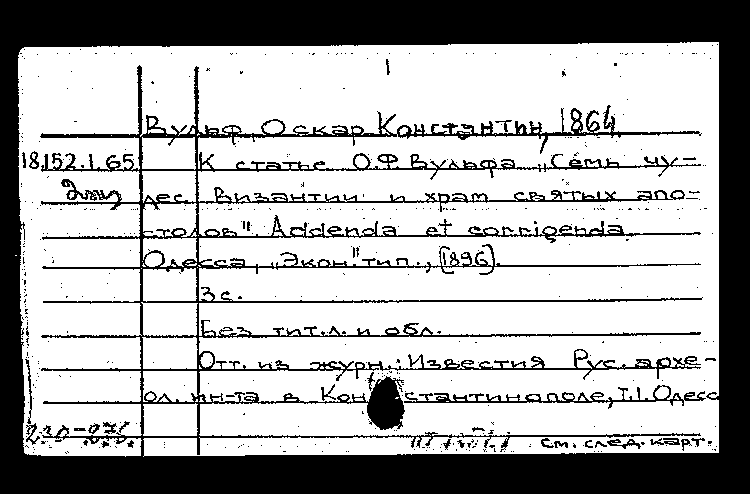 Вульф, Оскар Константин, 1864
18.152.1.65. К статье О.Ф.Вульфа „Семь чу-
дес Византии и храм святых апо-
столов". Addenda et corrigenda.
Одесса, „Экон." тип., [1896].
3 с.
Без тит.л. и обл.
Отт. из журн.: Известия Рус. архе-
ол. ин-та в Константинополе, т.1. Одесс
см. след. карт.